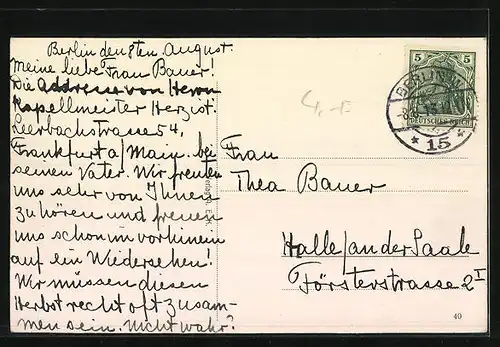 Berlin den 8ten August.
Meine liebe Frau Bauer!
Die Addresse von Herrn
Kapellmeister Herz ist.
Leerbachstrasse 54,
Frankfurt a/Main. bei
seinen Vater. Wir freuten
uns sehr von Ihnen
zu hören und freuen
uns schon im vorhinein
auf ein Wiedersehen!
Wir müssen diesen
Herbst recht oft zusam-
men sein. Nicht wahr?
4,-
5 5
DEUTSCHES REICH
BERLIN W
8.
* 15 *
Frau
Thea Bauer
Halle/an der Saale
Försterstrasse 2 I
40